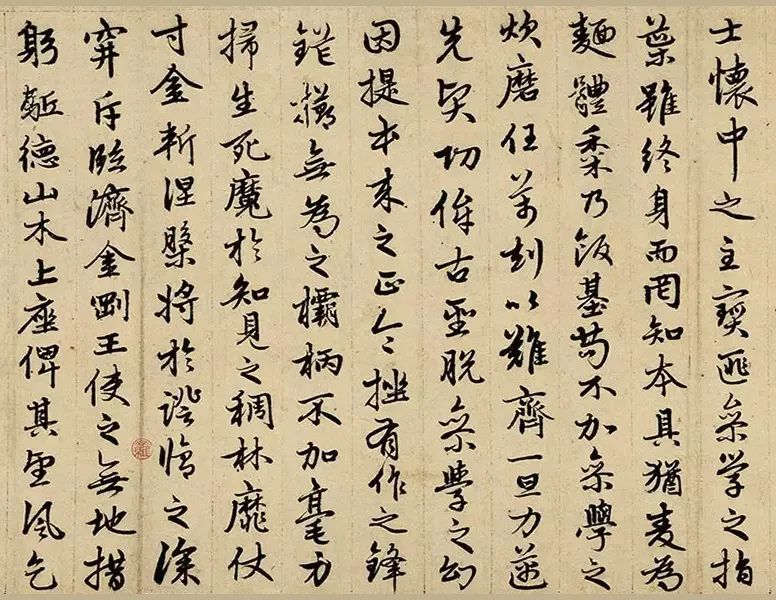 士懷中之主寶匪參学之指
葉雖終身而罔知本具猶麦為
麵體黍乃飯基苟不加參學之
炊磨任萬刧以難齊一旦力逆
先功侔古聖脱參學之幻
因提本来之正令挫有作之鋒
鋩無為之欛柄不加毫力
掃生死魔於知見之稠林靡仗
寸金斬涅槃將於證悟之深
穽斥臨濟金剛王使之無地措
躬駈德山木上座俾其望風乞